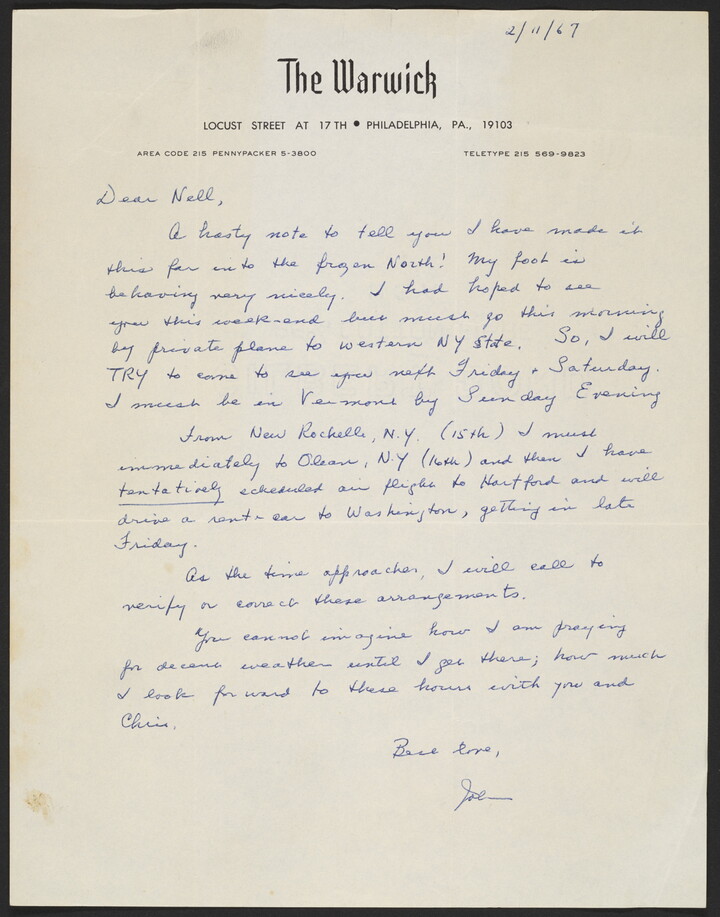 2/11/67
The Warwick
LOCUST STREET AT 17TH • PHILADELPHIA, PA., 19103
AREA CODE 215 PENNYPACKER 5-3800 TELETYPE 215 569-9823
Dear Nell,
A hasty note to tell you I have made it
this far into the frozen North! My foot is
behaving very nicely. I had hoped to see
you this week-end but must go this morning
by private plane to western NY State. So, I will
TRY to come to see you next Friday + Saturday.
I must be in Vermont by Sunday Evening
From New Rochelle, N.Y. (15th) I must
immediately to Olean, N.Y (16th) and then I have
tentatively scheduled air flight to Hartford and will
drive a rent-car to Washington, getting in late
Friday.
As the time approaches, I will call to
verify or correct these arrangements.
You cannot imagine how I am praying
for decent weather until I get there; how much
I look forward to these hours with you and
Chris.
Best love,
John